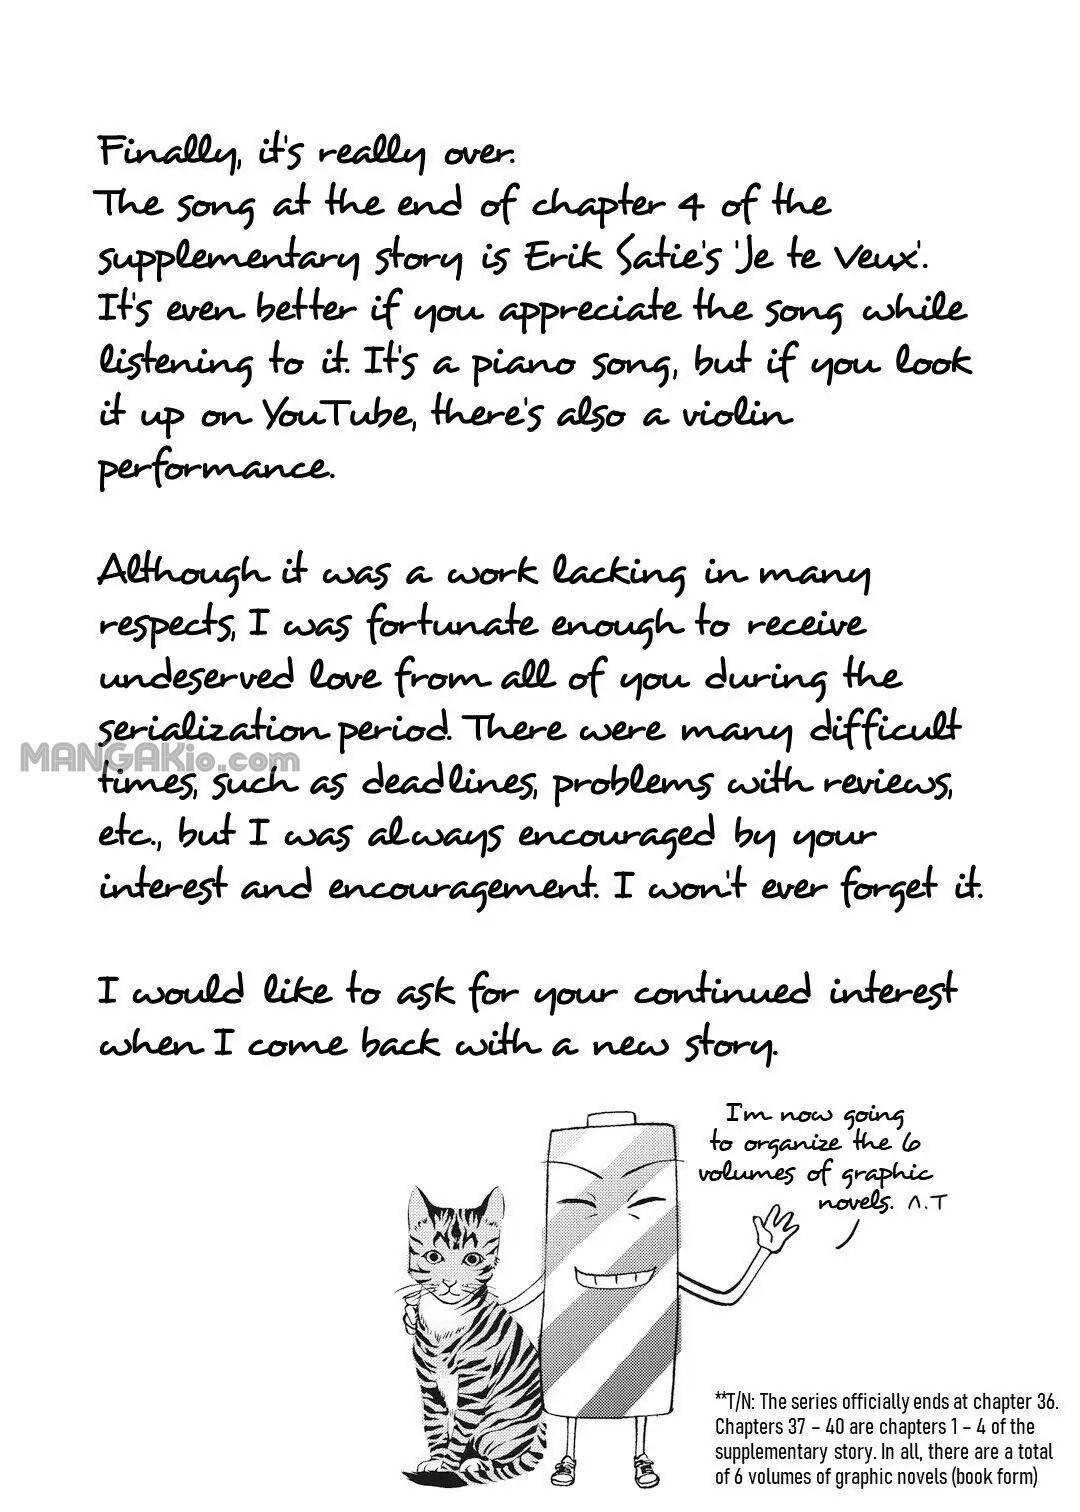 Finally, it's really over.
The song at the end of chapter 4 of the
supplementary story is Erik Satie's 'Je te Veux'.
It's even better if you appreciate the song while
listening to it. It's a piano song, but if you look
it up on YouTube, there's also a violin
performance.
Although it was a work lacking in many
respects, I was fortunate enough to receive
undeserved love from all of you during the
serialization period. There were many difficult
MANGAKio.com
times, such as deadlines, problems with reviews,
etc., but I was always encouraged by your
interest and encouragement. I won't ever forget it.
I would like to ask for your continued interest
when I come back with a new story.
I'm now going
to organize the 6
volumes of graphic
novels. ㅅ.T
**T/N: The series officially ends at chapter 36.
Chapters 37 - 40 are chapters 1 - 4 of the
supplementary story. In all, there are a total
of 6 volumes of graphic novels (book form)